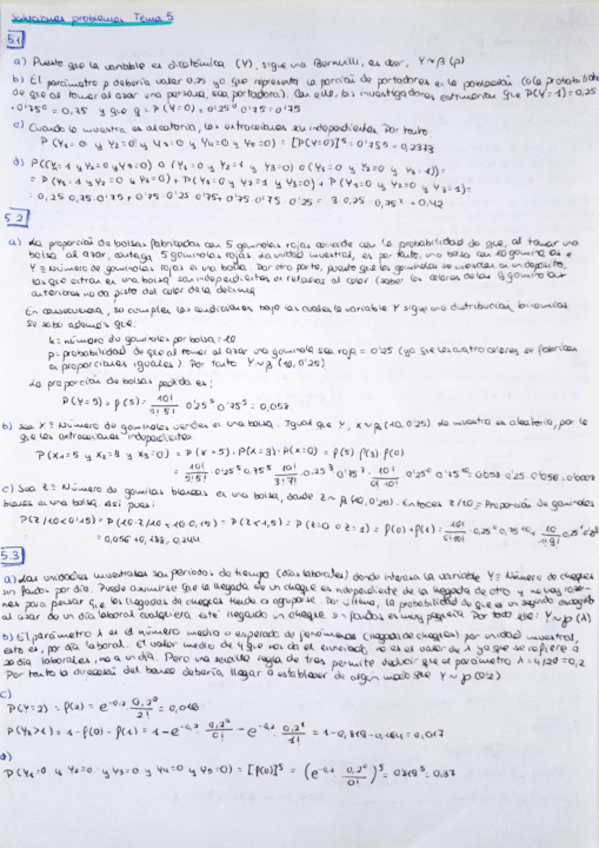 Soluciones problemas Tema 5
5.1
a) Puesto que la variable es dicotómica (Y), sigue una Bernoulli, es decir, Y~β(p)
b) El parámetro p debería valer 0,25 ya que representa la porción de portadores en la población (o la probabilidad
de que al tomar al azar una persona, sea portadora). Con ello, los investigadores estimarían que P(Y=1) = 0,25
· 0'75⁰ = 0,25 y que q = P(Y=0) = 0'25⁰ 0'75 = 0'75
c) Cuando la muestra es aleatoria, las extracciones son independientes. Por tanto:
P(Y₁=0 y Y₂=0 y Y₃=0 y Y₄=0 y Y₅=0) = [P(Y=0)]⁵ = 0'75⁵ = 0,2373
d) P((Y₁=1 y Y₂=0 y Y₃=0) o (Y₁=0 y Y₂=1 y Y₃=0) o (Y₁=0 y Y₂=0 y Y₃=1)) =
= P(Y₁=1 y Y₂=0 y Y₃=0) + P(Y₁=0 y Y₂=1 y Y₃=0) + P(Y₁=0 y Y₂=0 y Y₃=1) =
= 0,25·0,75·0'75 + 0'75·0'25·0'75 + 0'75·0'75·0'25 = 3·0,25·0,75² = 0,42
5.2
a) La proporción de bolsas fabricadas con 5 gominolas rojas coincide con la probabilidad de que, al tomar una
bolsa al azar, contenga 5 gominolas rojas. La unidad muestral, es por tanto, una bolsa con 10 gominolas e
Y ≡ Número de gominolas rojas en una bolsa. Por otro parte, puesto que las gominolas se mezclan en un depósito,
las que entran en una bolsa son independientes en relación al color (saber los colores de las 9 gominolas
anteriores no da pista del color de la décima
En consecuencia, se cumplen las condiciones bajo las cuales la variable Y sigue una distribución binomial
Se sabe además que:
k = número de gominolas por bolsa = 10
p = probabilidad de que al tomar al azar una gominola sea roja = 0'25 (ya que los cuatro colores se fabrican
en proporciones iguales). Por tanto Y~β(10, 0'25)
La proporción de bolsas pedida es:
P(Y=5) = p(5) = 10!/5!5! 0'25⁵ 0'75⁵ = 0,058
b) Sea X ≡ Número de gominolas verdes en una bolsa. Igual que Y, X~β(10, 0'25). La muestra es aleatoria, por lo
que las extracciones independientes
P(X₁=5 y X₂=3 y X₃=0) = P(X=5)·P(X=3)·P(X=0) = p(5) p(3) p(0)
= 10!/5!5! · 0'25⁵ 0,75⁵ · 10!/3!7! · 0,25³ 0'75⁷ · 10!/0!10! · 0'25⁰ 0'75¹⁰ = 0'058·0'25·0'056 = 0'0008
c) Sea Z ≡ Número de gomilas blancas en una bolsa, donde Z~β(10, 0'25). Entonces Z/10 = Proporción de gominolas
blancas en una bolsa. Así pues:
P(Z/10<0'15) = P(10·Z/10<10·0,15) = P(Z<1,5) = P(Z=0 o Z=1) = p(0)+p(1) = 10!/0!10! · 0,25⁰ 0,75¹⁰ + 10!/1!9!
= 0,056 + 0,188 = 0,244
5.3
a) Las unidades muestrales son periodos de tiempo (días laborales) donde interesa la variable Y ≡ Número de cheques
sin fondos por día. Puede asumirse que la llegada de un cheque es independiente de la llegada de otro y no hay razo-
nes para pensar que las llegadas de cheques tiende a agruparse. Por último, la probabilidad de que en un segundo escogido
al azar de un día laboral cualquiera esté llegando un cheque sin fondos es muy pequeña. Por todo ello: Y~p(λ)
b) El parámetro λ es el número medio o esperado de fenómenos (llegada de cheques) por unidad muestral,
esto es, por día laboral. El valor medio de 4 que nos da el enunciado, no es el valor de λ ya que se refiere a
20 día laborales, no a un día. Pero una sencilla regla de tres permite deducir que el parámetro λ = 4/20 = 0,2
Por tanto la dirección del banco debería llegar a establecer de algún modo que Y~p(0'2)
c)
P(Y=2) = p(2) = e^-0,2 · 0,2²/2! = 0,016
P(Y>1) = 1 - p(0) - p(1) = 1 - e^-0,2 · 0,2⁰/0! - e^-0,2 · 0,2¹/1! = 1 - 0,819 - 0,164 = 0,017
d)
P(Y₁=0 y Y₂=0 y Y₃=0 y Y₄=0 y Y₅=0) = [p(0)]⁵ = (e^-0,2 · 0,2⁰/0!)⁵ = 0'819⁵ = 0,37